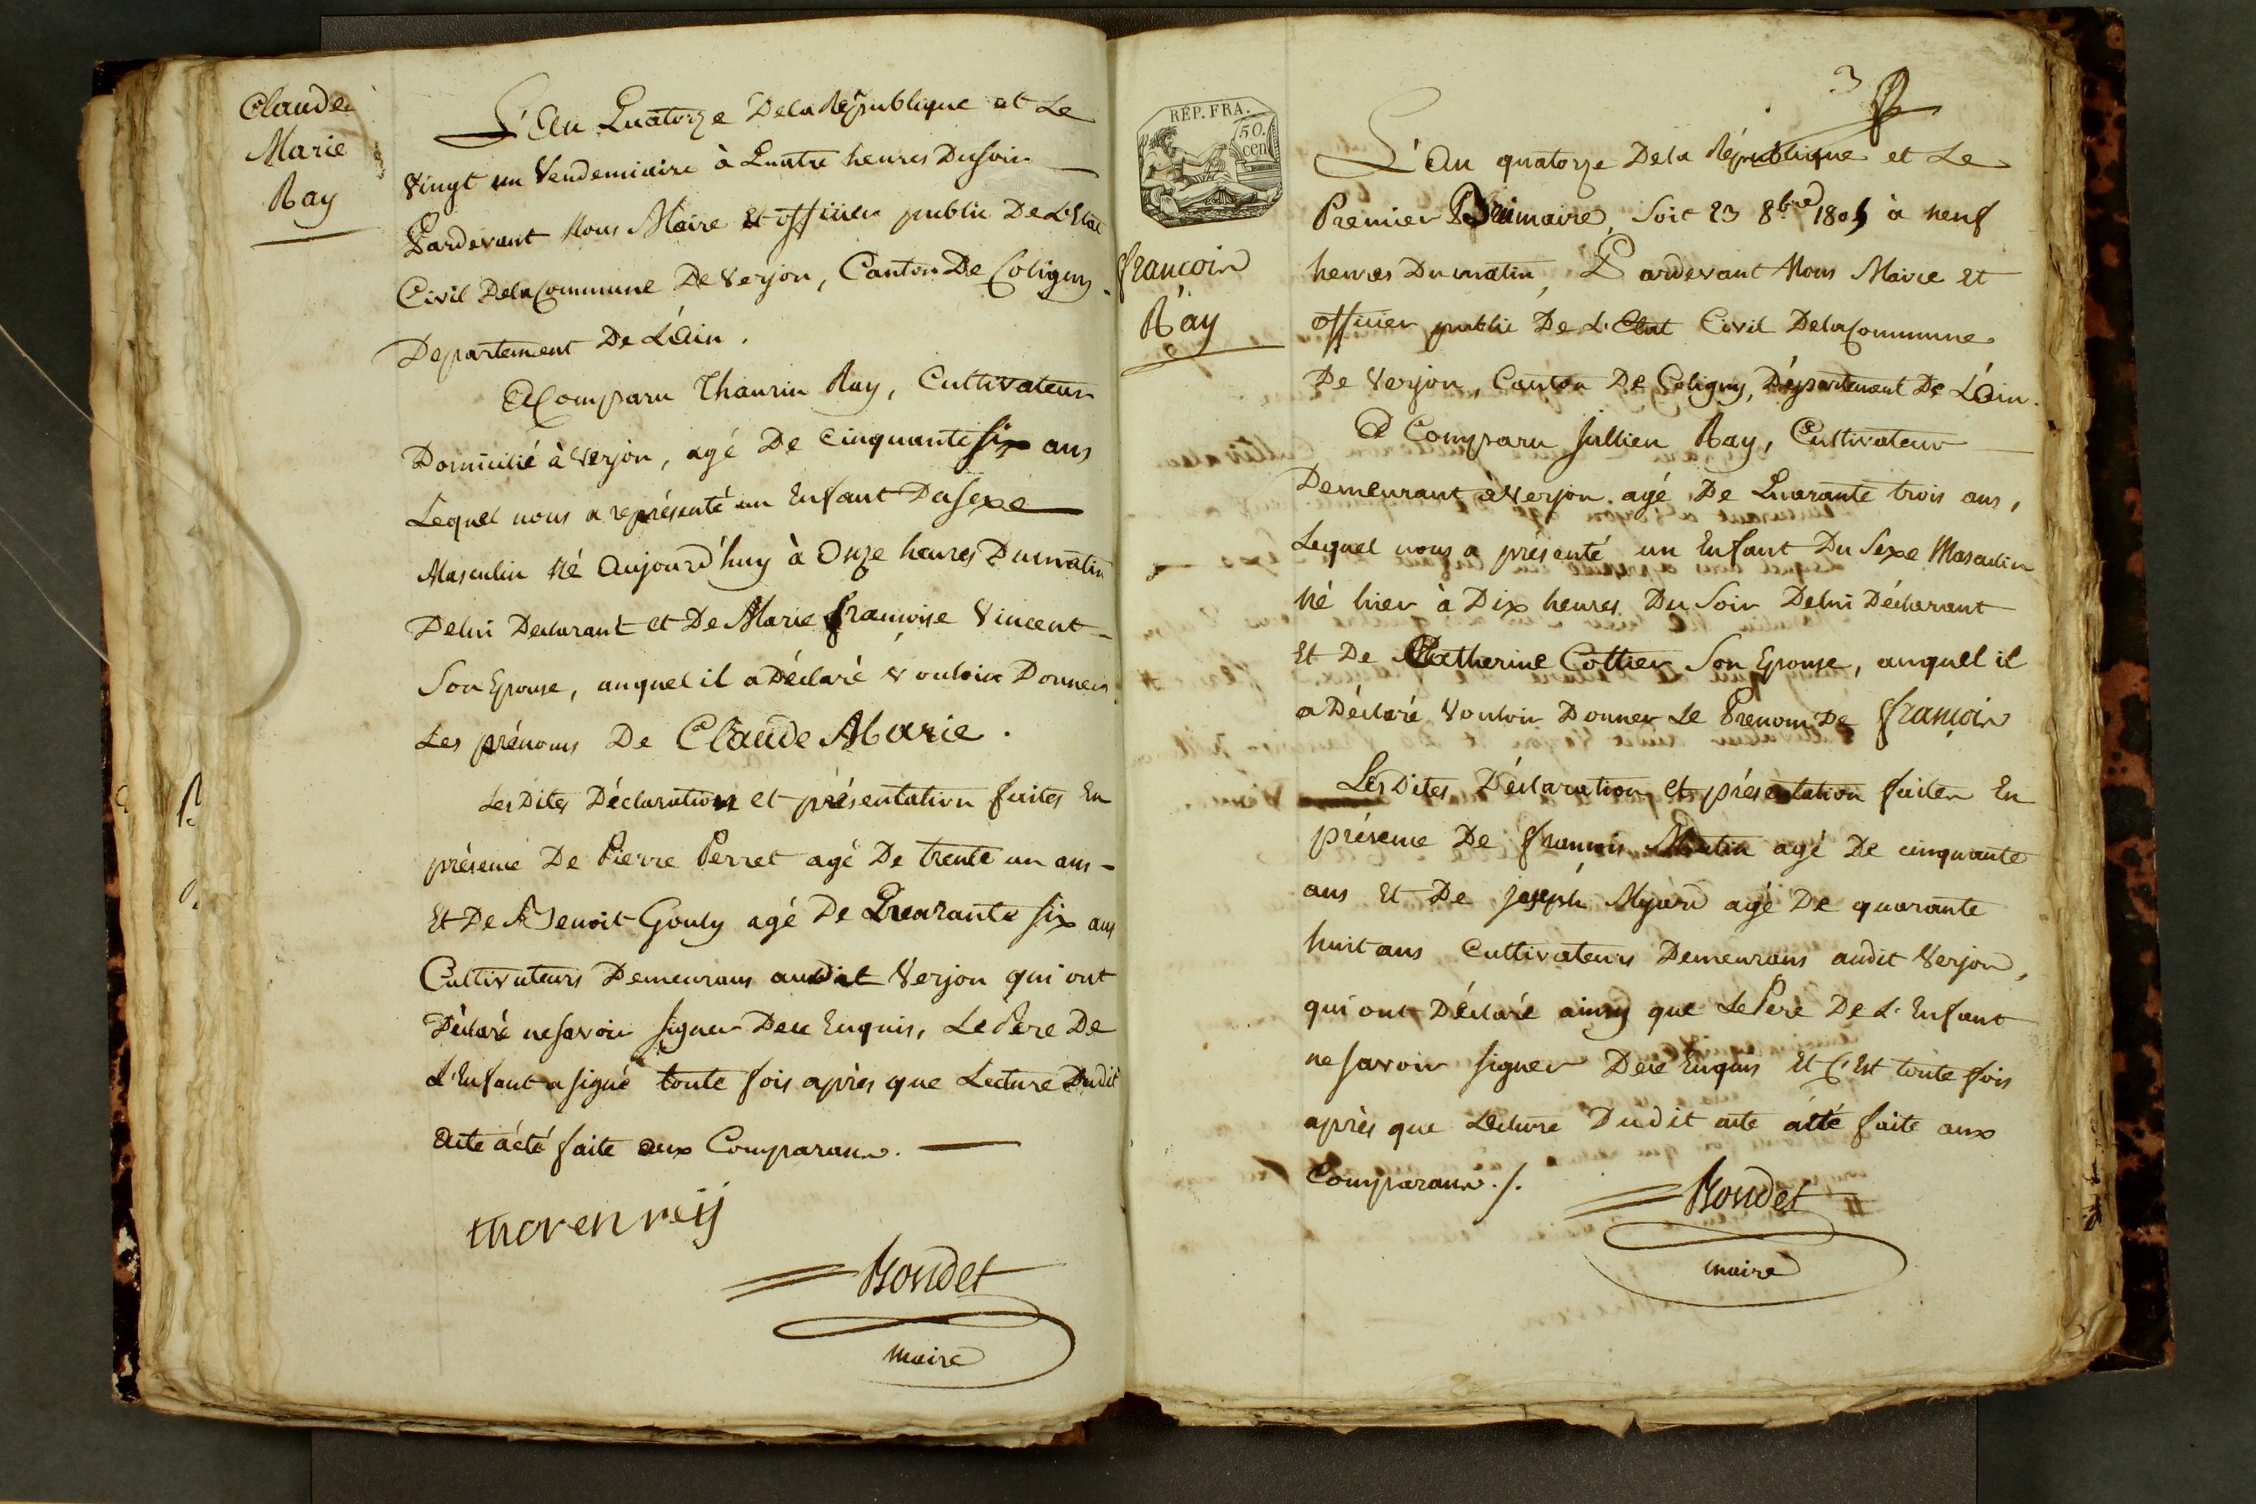 Claude
Marie
Ray
L'An Quatorze De la République et Le
Vingt un Vendemiaire à Quatre heures Du soir
Pardevant Nous Maire et officier public De L'Etat
Civil De la Commune De Verjon, Canton De Coligny
Departement De L'Ain.
A Comparu Thaurin Ray, Cultivateur
Domicilié à Verjon, agé De Cinquante six ans
Lequel nous a représenté un Enfant Du sexe
Masculin Né Aujourd'huy à Onze heures Du matin
De lui Declarant et De Marie françoise Vincent
Son Epouse, auquel il a Déclaré Vouloir Donner
Les prénoms De Claude Marie.
Les Dites Déclaration et présentation faites En
présence De Pierre Perret agé De trente un ans
Et De Benoit Gouly agé De Quarante six ans
Cultivateurs Demeurans audit Verjon qui ont
Déclaré ne savoir signer De ce Enquis, Le Père De
L'Enfant a signé toute fois après que Lecture Dudit
acte a été faite aux Comparans.
thoren reÿ
Bondet
maire
REP. FRA.
50.
cen
françois
Ray
3
L'An quatorze De la République et Le
Premier Brumaire, Soit 23 8bre 1805 à neuf
heures Du matin, Pardevant Nous Maire et
officier public De L'Etat Civil De la Commune
De Verjon, Canton De Coligny, Département De L'Ain.
A Comparu Jullien Ray, Cultivateur
Demeurant à Verjon agé De Quarante trois ans,
Lequel nous a présenté un Enfant Du Sexe Masculin
Né hier à Dix heures Du Soir De lui Déclarant
Et De Catherine Cottier Son Epouse, auquel il
a Déclaré Vouloir Donner Le Prenom De françois
Les Dites Déclaration et présentation faites En
présence De françois agé De cinquante
ans Et De Joseph Myard agé De quarante
huit ans Cultivateurs Demeurans audit Verjon,
qui ont Déclaré ainsy que Le Père De L'Enfant
ne savoir signer De ce Enquis Et C'Est toute fois
après que Lecture Dudit acte a été faite aux
Comparans./.
Bondet
maire